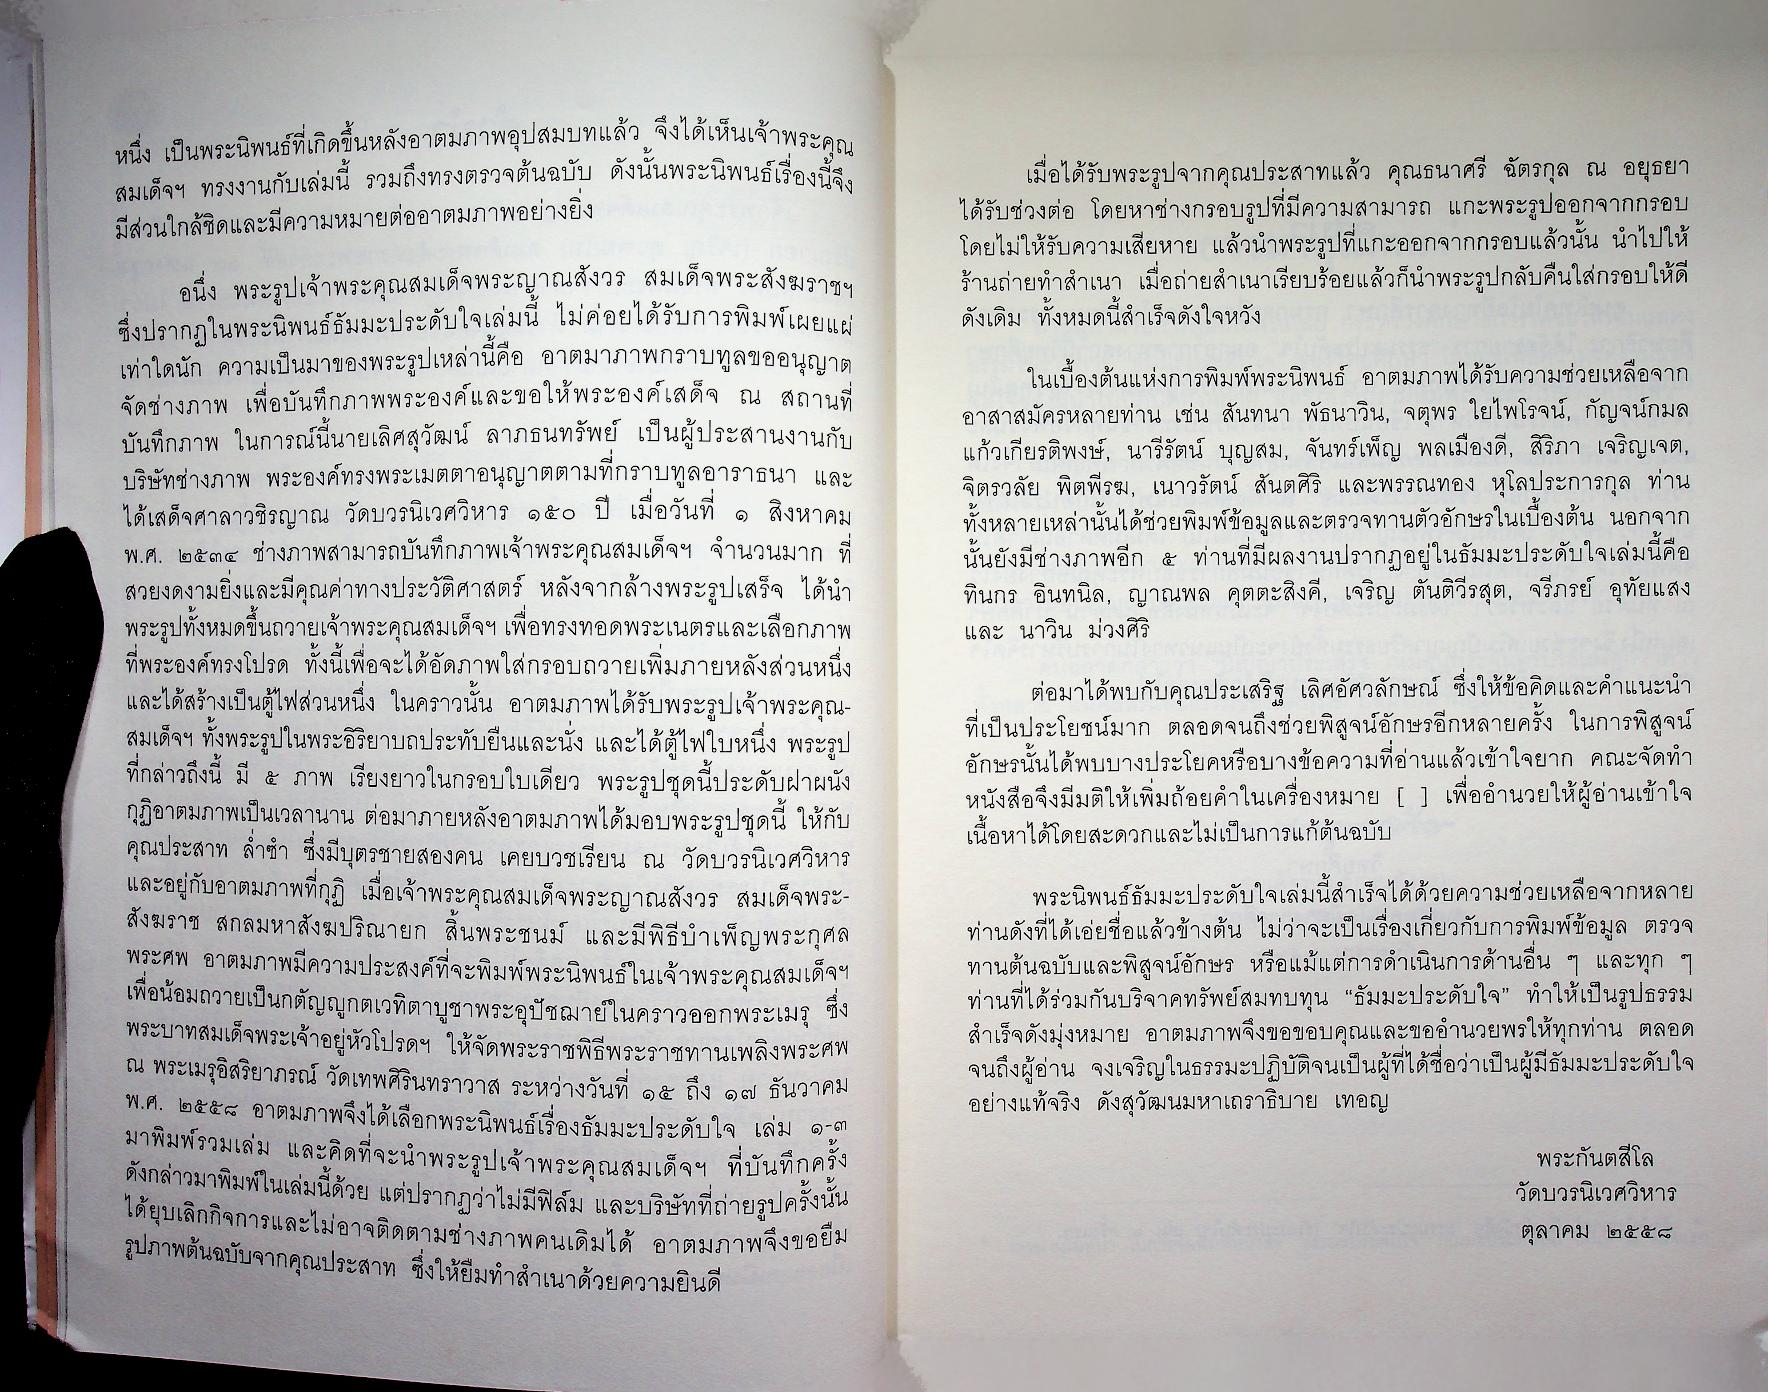 หนึ่ง เป็นพระนิพนธ์ที่เกิดขึ้นหลังอาตมภาพอุปสมบทแล้ว จึงได้เห็นเจ้าพระคุณ
สมเด็จฯ ทรงงานกับเล่มนี้ รวมถึงทรงตรวจต้นฉบับ ดังนั้นพระนิพนธ์เรื่องนี้จึง
มีส่วนใกล้ชิดและมีความหมายต่ออาตมภาพอย่างยิ่ง
อนึ่ง พระรูปเจ้าพระคุณสมเด็จพระญาณสังวร สมเด็จพระสังฆราชฯ
ซึ่งปรากฏในพระนิพนธ์ธัมมะประดับใจเล่มนี้ ไม่ค่อยได้รับการพิมพ์เผยแผ่
เท่าใดนัก ความเป็นมาของพระรูปเหล่านี้คือ อาตมาภาพกราบทูลขออนุญาต
จัดช่างภาพ เพื่อบันทึกภาพพระองค์และขอให้พระองค์เสด็จ ณ สถานที่
บันทึกภาพ ในการณ์นี้นายเลิศสุวัฒน์ ลาภธนทรัพย์ เป็นผู้ประสานงานกับ
บริษัทช่างภาพ พระองค์ทรงพระเมตตาอนุญาตตามที่กราบทูลอาราธนา และ
ได้เสด็จศาลาวชิรญาณ วัดบวรนิเวศวิหาร ๑๕๐ ปี เมื่อวันที่ ๑ สิงหาคม
พ.ศ. ๒๕๓๔ ช่างภาพสามารถบันทึกภาพเจ้าพระคุณสมเด็จฯ จำนวนมาก ที่
สวยงดงามยิ่งและมีคุณค่าทางประวัติศาสตร์ หลังจากล้างพระรูปเสร็จ ได้นำ
พระรูปทั้งหมดขึ้นถวายเจ้าพระคุณสมเด็จฯ เพื่อทรงทอดพระเนตรและเลือกภาพ
ที่พระองค์ทรงโปรด ทั้งนี้เพื่อจะได้อัดภาพใส่กรอบถวายเพิ่มภายหลังส่วนหนึ่ง
และได้สร้างเป็นตู้ไฟส่วนหนึ่ง ในคราวนั้น อาตมภาพได้รับพระรูปเจ้าพระคุณ-
สมเด็จฯ ทั้งพระรูปในพระอิริยาบถประทับยืนและนั่ง และได้ตู้ไฟใบหนึ่ง พระรูป
ที่กล่าวถึงนี้ มี ๕ ภาพ เรียงยาวในกรอบใบเดียว พระรูปชุดนี้ประดับฝาผนัง
กุฏิอาตมภาพเป็นเวลานาน ต่อมาภายหลังอาตมภาพได้มอบพระรูปชุดนี้ ให้กับ
คุณประสาท ล่ำซำ ซึ่งมีบุตรชายสองคน เคยบวชเรียน ณ วัดบวรนิเวศวิหาร
และอยู่กับอาตมภาพที่กุฏิ เมื่อเจ้าพระคุณสมเด็จพระญาณสังวร สมเด็จพระ-
สังฆราช สกลมหาสังฆปริณายก สิ้นพระชนม์ และมีพิธีบำเพ็ญพระกุศล
พระศพ อาตมภาพมีความประสงค์ที่จะพิมพ์พระนิพนธ์ในเจ้าพระคุณสมเด็จฯ
เพื่อน้อมถวายเป็นกตัญญูกตเวทิตาบูชาพระอุปัชฌาย์ในคราวออกพระเมรุ ซึ่ง
พระบาทสมเด็จพระเจ้าอยู่หัวโปรดฯ ให้จัดพระราชพิธีพระราชทานเพลิงพระศพ
ณ พระเมรุอิสริยาภรณ์ วัดเทพศิรินทราวาส ระหว่างวันที่ ๑๕ ถึง ๑๗ ธันวาคม
พ.ศ. ๒๕๕๘ อาตมภาพจึงได้เลือกพระนิพนธ์เรื่องธัมมะประดับใจ เล่ม ๑-๓
มาพิมพ์รวมเล่ม และคิดที่จะนำพระรูปเจ้าพระคุณสมเด็จฯ ที่บันทึกครั้ง
ดังกล่าวมาพิมพ์ในเล่มนี้ด้วย แต่ปรากฏว่าไม่มีฟิล์ม และบริษัทที่ถ่ายรูปครั้งนั้น
ได้ยุบเลิกกิจการและไม่อาจติดตามช่างภาพคนเดิมได้ อาตมภาพจึงขอยืม
รูปภาพต้นฉบับจากคุณประสาท ซึ่งให้ยืมทำสำเนาด้วยความยินดี
เมื่อได้รับพระรูปจากคุณประสาทแล้ว คุณธนาศรี ฉัตรกุล ณ อยุธยา
ได้รับช่วงต่อ โดยหาช่างกรอบรูปที่มีความสามารถ แกะพระรูปออกจากกรอบ
โดยไม่ให้รับความเสียหาย แล้วนำพระรูปที่แกะออกจากกรอบแล้วนั้น นำไปให้
ร้านถ่ายทำสำเนา เมื่อถ่ายสำเนาเรียบร้อยแล้วก็นำพระรูปกลับคืนใส่กรอบให้ดี
ดังเดิม ทั้งหมดนี้สำเร็จดังใจหวัง
ในเบื้องต้นแห่งการพิมพ์พระนิพนธ์ อาตมภาพได้รับความช่วยเหลือจาก
อาสาสมัครหลายท่าน เช่น สันทนา พัธนาวิน, จตุพร ใยไพโรจน์, กัญจน์กมล
แก้วเกียรติพงษ์, นารีรัตน์ บุญสม, จันทร์เพ็ญ พลเมืองดี, สิริภา เจริญเจต,
จิตรวลัย พิตพีรฆ, เนาวรัตน์ สันตศิริ และพรรณทอง หุโลประการกุล ท่าน
ทั้งหลายเหล่านั้นได้ช่วยพิมพ์ข้อมูลและตรวจทานตัวอักษรในเบื้องต้น นอกจาก
นั้นยังมีช่างภาพอีก ๕ ท่านที่มีผลงานปรากฏอยู่ในธัมมะประดับใจเล่มนี้คือ
ทินกร อินทนิล, ญาณพล คุตตะสิงคี, เจริญ ตันติวีรสุต, จรีภรย์ อุทัยแสง
และ นาวิน ม่วงศิริ
ต่อมาได้พบกับคุณประเสริฐ เลิศอัศวลักษณ์ ซึ่งให้ข้อคิดและคำแนะนำ
ที่เป็นประโยชน์มาก ตลอดจนถึงช่วยพิสูจน์อักษรอีกหลายครั้ง ในการพิสูจน์
อักษรนั้นได้พบบางประโยคหรือบางข้อความที่อ่านแล้วเข้าใจยาก คณะจัดทำ
หนังสือจึงมีมติให้เพิ่มถ้อยคำในเครื่องหมาย [ ] เพื่ออำนวยให้ผู้อ่านเข้าใจ
เนื้อหาได้โดยสะดวกและไม่เป็นการแก้ต้นฉบับ
พระนิพนธ์ธัมมะประดับใจเล่มนี้สำเร็จได้ด้วยความช่วยเหลือจากหลาย
ท่านดังที่ได้เอ่ยชื่อแล้วข้างต้น ไม่ว่าจะเป็นเรื่องเกี่ยวกับการพิมพ์ข้อมูล ตรวจ
ทานต้นฉบับและพิสูจน์อักษร หรือแม้แต่การดำเนินการด้านอื่น ๆ และทุก ๆ
ท่านที่ได้ร่วมกันบริจาคทรัพย์สมทบทุน “ธัมมะประดับใจ” ทำให้เป็นรูปธรรม
สำเร็จดังมุ่งหมาย อาตมภาพจึงขอขอบคุณและขออำนวยพรให้ทุกท่าน ตลอด
จนถึงผู้อ่าน จงเจริญในธรรมะปฏิบัติจนเป็นผู้ที่ได้ชื่อว่าเป็นผู้มีธัมมะประดับใจ
อย่างแท้จริง ดังสุวัฒนมหาเถราธิบาย เทอญ
พระกันตสีโล
วัดบวรนิเวศวิหาร
ตุลาคม ๒๕๕๘